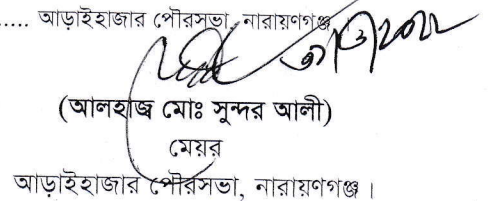 ..... আড়াইহাজার পৌরসভা, নারায়ণগঞ্জ ।
(আলহাজ্ব মোঃ সুন্দর আলী)
মেয়র
আড়াইহাজার পৌরসভা, নারায়ণগঞ্জ ।